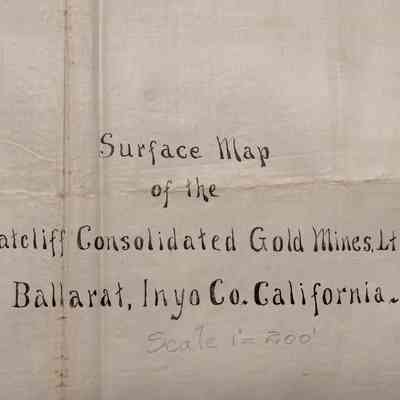 Surface Map
of the
atcliff Consolidated Gold Mines, Lt
Ballarat, Inyo Co. California.
Scale 1"=200'